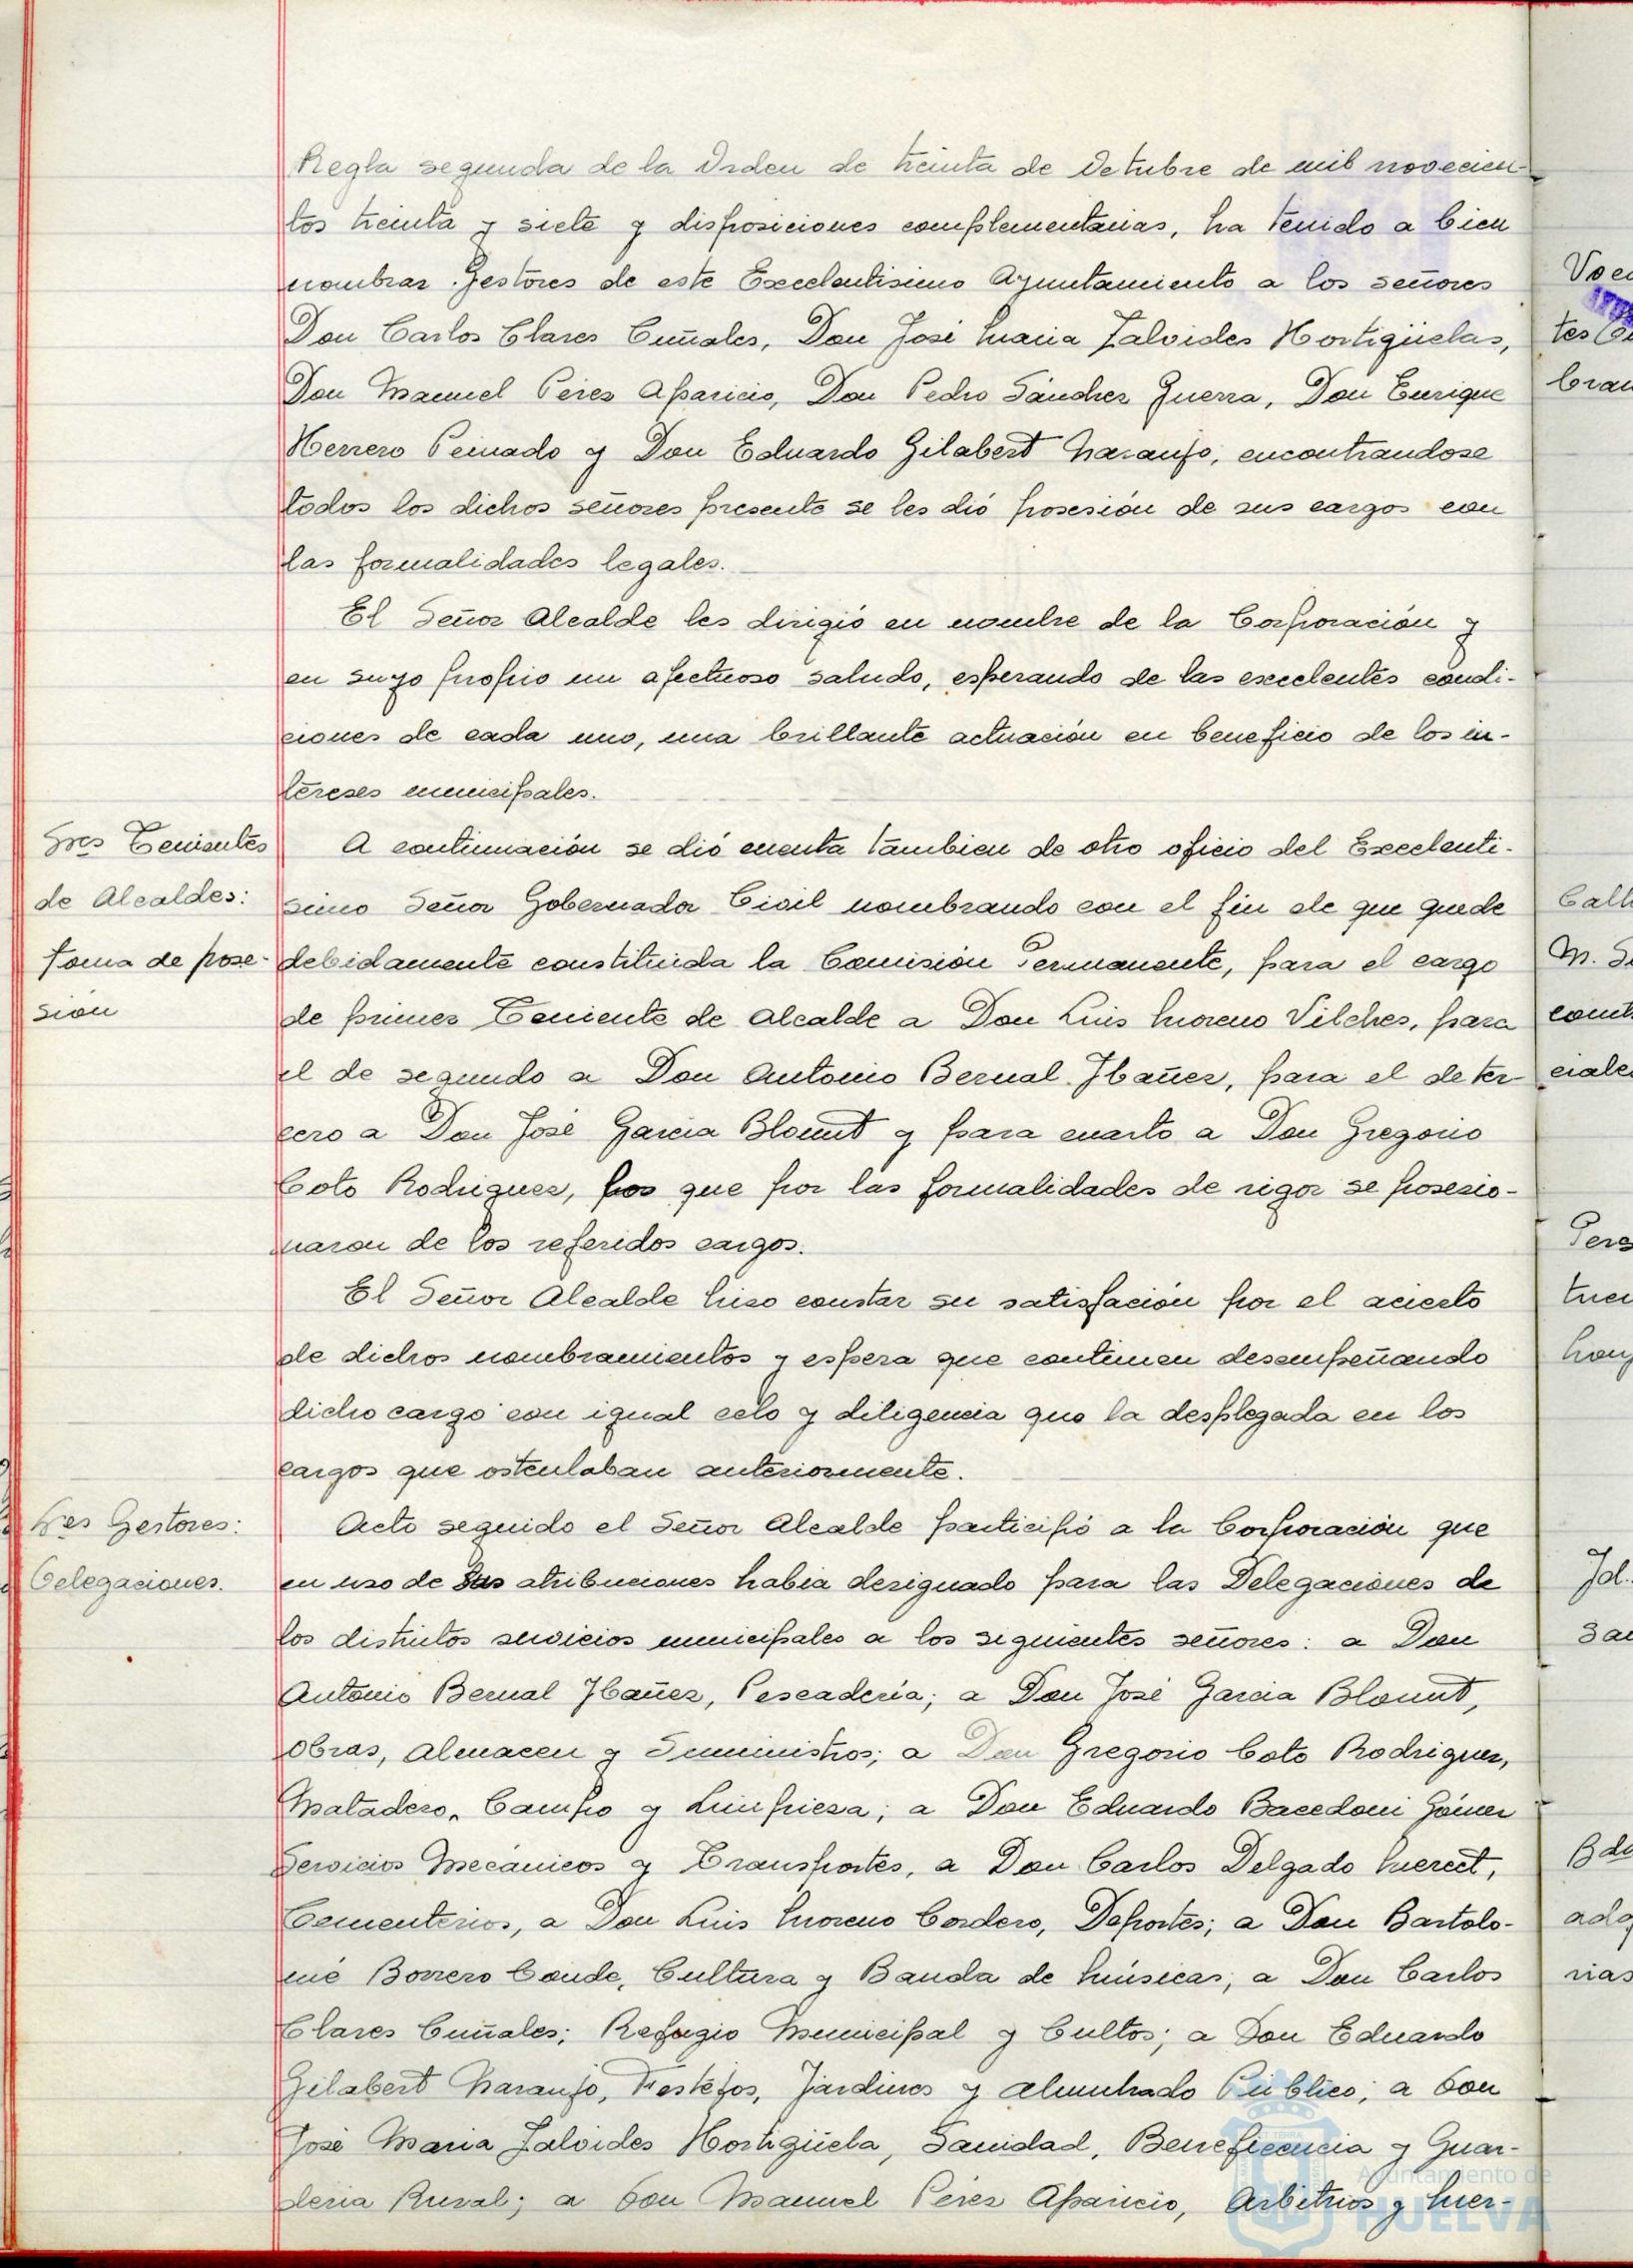 Regla segunda de la Orden de treinta de Octubre de mil novecien-
tos treinta y siete y disposiciones complementarias, ha tenido a bien
nombrar Gestores de este Excelentisimo Ayuntamiento a los señores
Don Carlos Clares Cuñales, Don José Maria Zalvides Hortigüelas,
Don Manuel Peres Aparicio, Don Pedro Sánchez Guerra, Don Enrique
Herrero Peinado y Don Eduardo Gilabert Naranjo, encontrandose
todos los dichos señores presente se les dió posesión de sus cargos con
las formalidades legales.
El Señor Alcalde les dirigió en nombre de la Corporación y
en suyo propio un afectuoso saludo, esperando de las excelentes condi-
ciones de cada uno, una brillante actuación en beneficio de los in-
tereses municipales.
Sres Tenientes
de Alcaldes:
toma de pose-
sión
A continuación se dió cuenta tambien de otro oficio del Excelenti-
simo Señor Gobernador Civil nombrando con el fin de que quede
debidamente constituida la Comisión Permanente, para el cargo
de primer Teniente de Alcalde a Don Luis Moreno Vilches, para
el de segundo a Don Antonio Bernal Ibañez, para el de ter-
cero a Don José Garcia Blount y para cuarto a Don Gregorio
Coto Rodriguez, los que por las formalidades de rigor se posesio-
naron de los referidos cargos.
El Señor Alcalde hizo constar su satisfación por el acierto
de dichos nombramientos y espera que continuen desempeñando
dicho cargo con igual celo y diligencia que la desplegada en los
cargos que ostentaban anteriormente.
Sres Gestores:
Delegaciones.
Acto seguido el Señor Alcalde participó a la Corporación que
en uso de sus atribuciones habia designado para las Delegaciones de
los distintos servicios municipales a los siguientes señores: a Don
Antonio Bernal Ibañez, Pescaderia; a Don José Garcia Blount,
Obras, Almacen y Suministros; a Don Gregorio Coto Rodriguez,
Matadero, Campo y Limpieza; a Don Eduardo Bacedoni Gómez
Servicios Mecánicos y Transportes, a Don Carlos Delgado
Cementerios, a Don Luis Moreno Cordero, Deportes; a Don Bartolo-
mé Borrero Conde, Cultura y Banda de Músicas; a Don Carlos
Clares Cuñales; Refugio Municipal y Cultos; a Don Eduardo
Gilabert Naranjo, Festejos, Jardines y Alumbrado Público; a Don
José Maria Zalvides Hortigüela, Sanidad, Beneficencia y Guar-
deria Rural; a Don Manuel Péres Aparicio, Arbitrios y Mer-
Ayuntamiento de
HUELVA